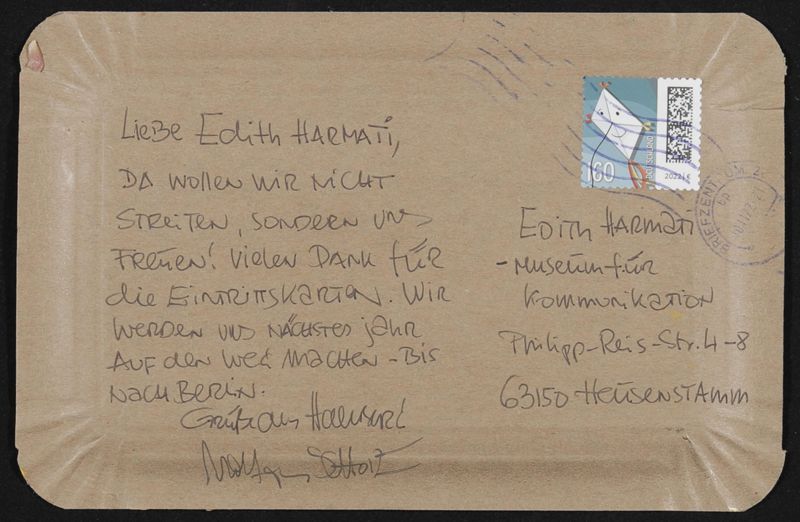 Liebe Edith Harmati,
Da wollen wir nicht
streiten, sondern uns
freuen! Vielen Dank für
die Eintrittskarten. Wir
werden uns nächstes Jahr
auf den Weg machen - bis
nach Berlin.
Grüße aus
160
DEUTSCHLAND
2022
BRIEFZENTRUM
Edith Harmati
- Museum für
Kommunikation
Philipp-Reis-Str. 4-8
63150 Heusenstamm